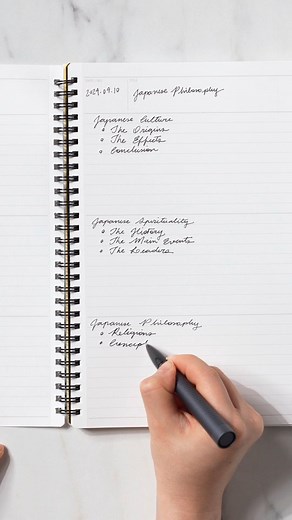 2024.09.10 Japanese Philosophy
Japanese Culture
The Origins
The Effects
Conclusion
Japanese Spirituality
The History
The Main Events
The Leaders
Japanese Philosophy
Religions
Concep